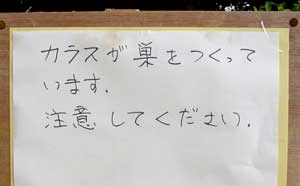 カラスが巣をつくって
います.
注意してください.